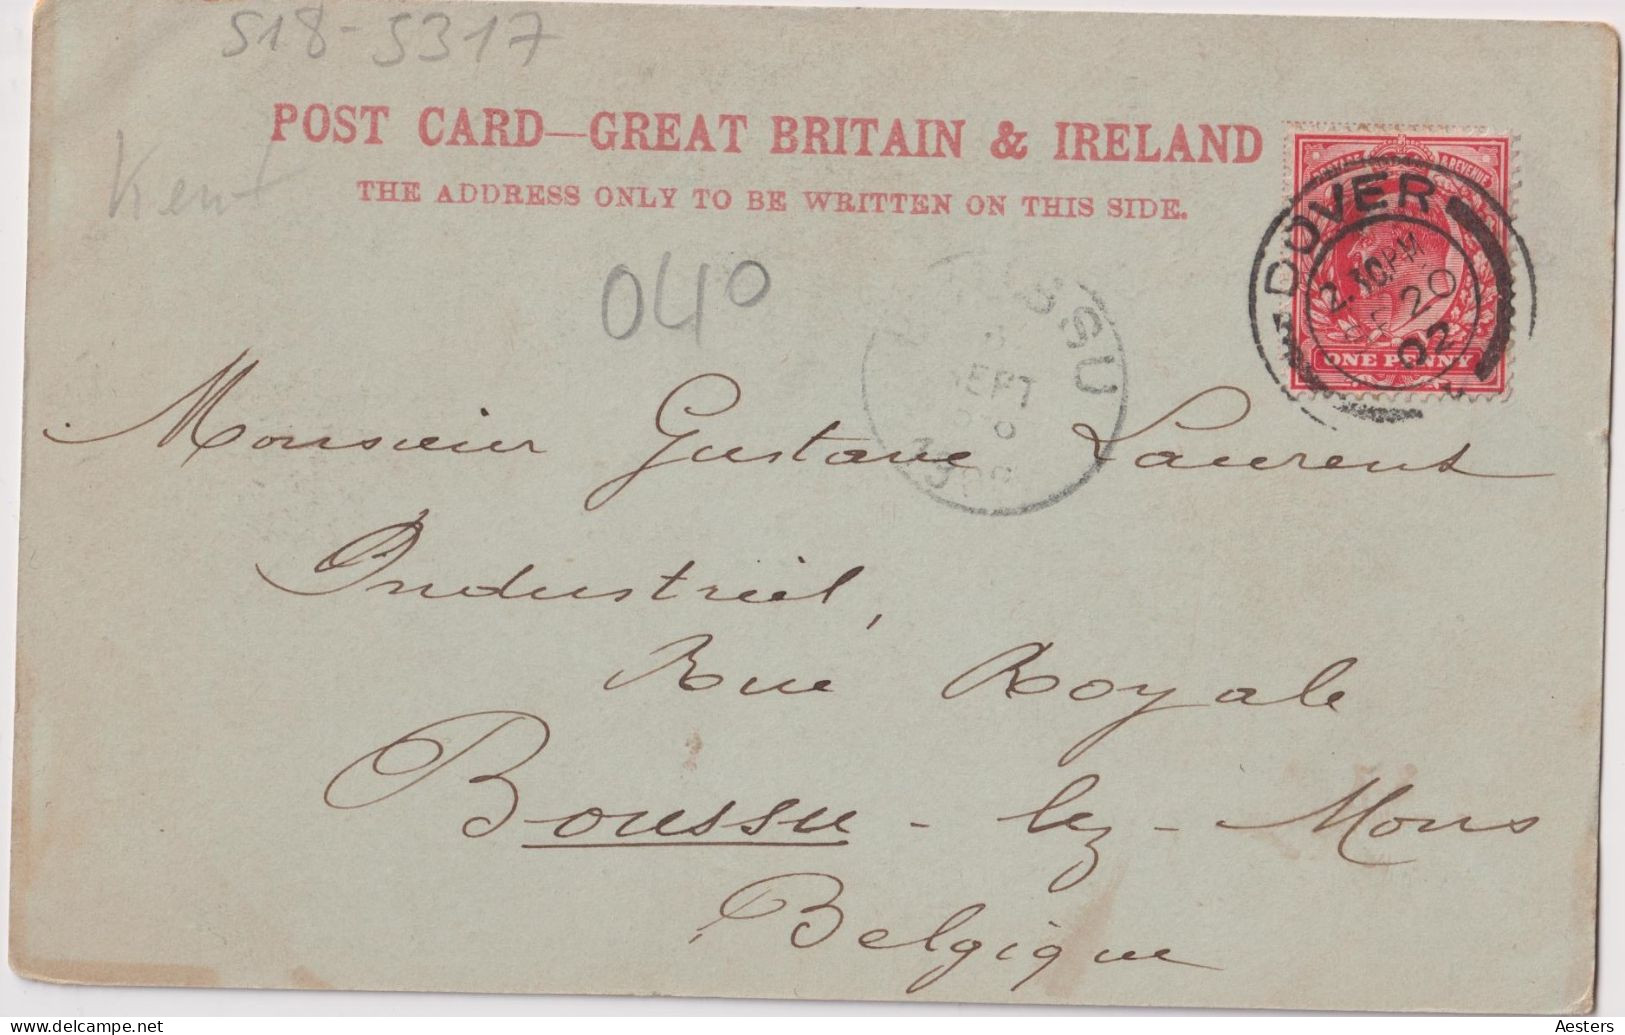 S18-S317
POST CARD—GREAT BRITAIN & IRELAND
THE ADDRESS ONLY TO BE WRITTEN ON THIS SIDE.
Kent
040
POSTAGE & REVENUE
ONE PENNY
DOVER
2.30PM
SE 20
02
SEPT
Monsieur Gustave Laurent
Industriel,
Rue Royale
Boussu-lez-Mons
Belgique
Aesters